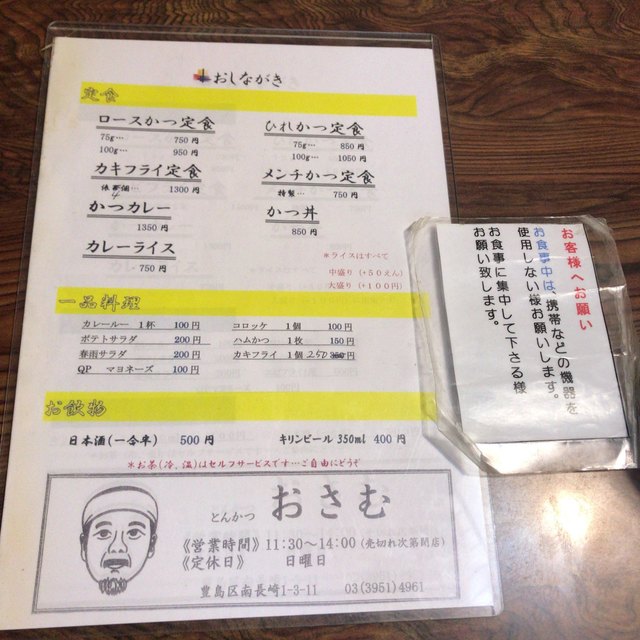 おしながき
定食
ロースかつ定食
75g… 750円
100g… 950円
ひれかつ定食
75g… 850円
100g… 1050円
カキフライ定食
4 1300円
メンチかつ定食
特製… 750円
かつカレー
1350円
かつ丼
850円
カレーライス
750円
*ライスはすべて
中盛り(+50えん)
大盛り(+100円)
一品料理
カレールー 1杯 100円
コロッケ 1個 100円
ポテトサラダ 200円
ハムかつ 1枚 150円
春雨サラダ 200円
カキフライ 1個 250 円
QP マヨネーズ 100円
お飲物
日本酒(一合半) 500円
キリンビール 350ml 400円
*お茶(冷,温)はセルフサービスです…ご自由にどうぞ
とんかつ おさむ
《営業時間》11:30~14:00(売切れ次第閉店)
《定休日》 日曜日
豊島区南長崎1-3-11 03(3951)4961
お客様へお願い
お食事中は、携帯などの機器を
使用しない様お願いします。
お食事に集中して下さる様
お願い致します。